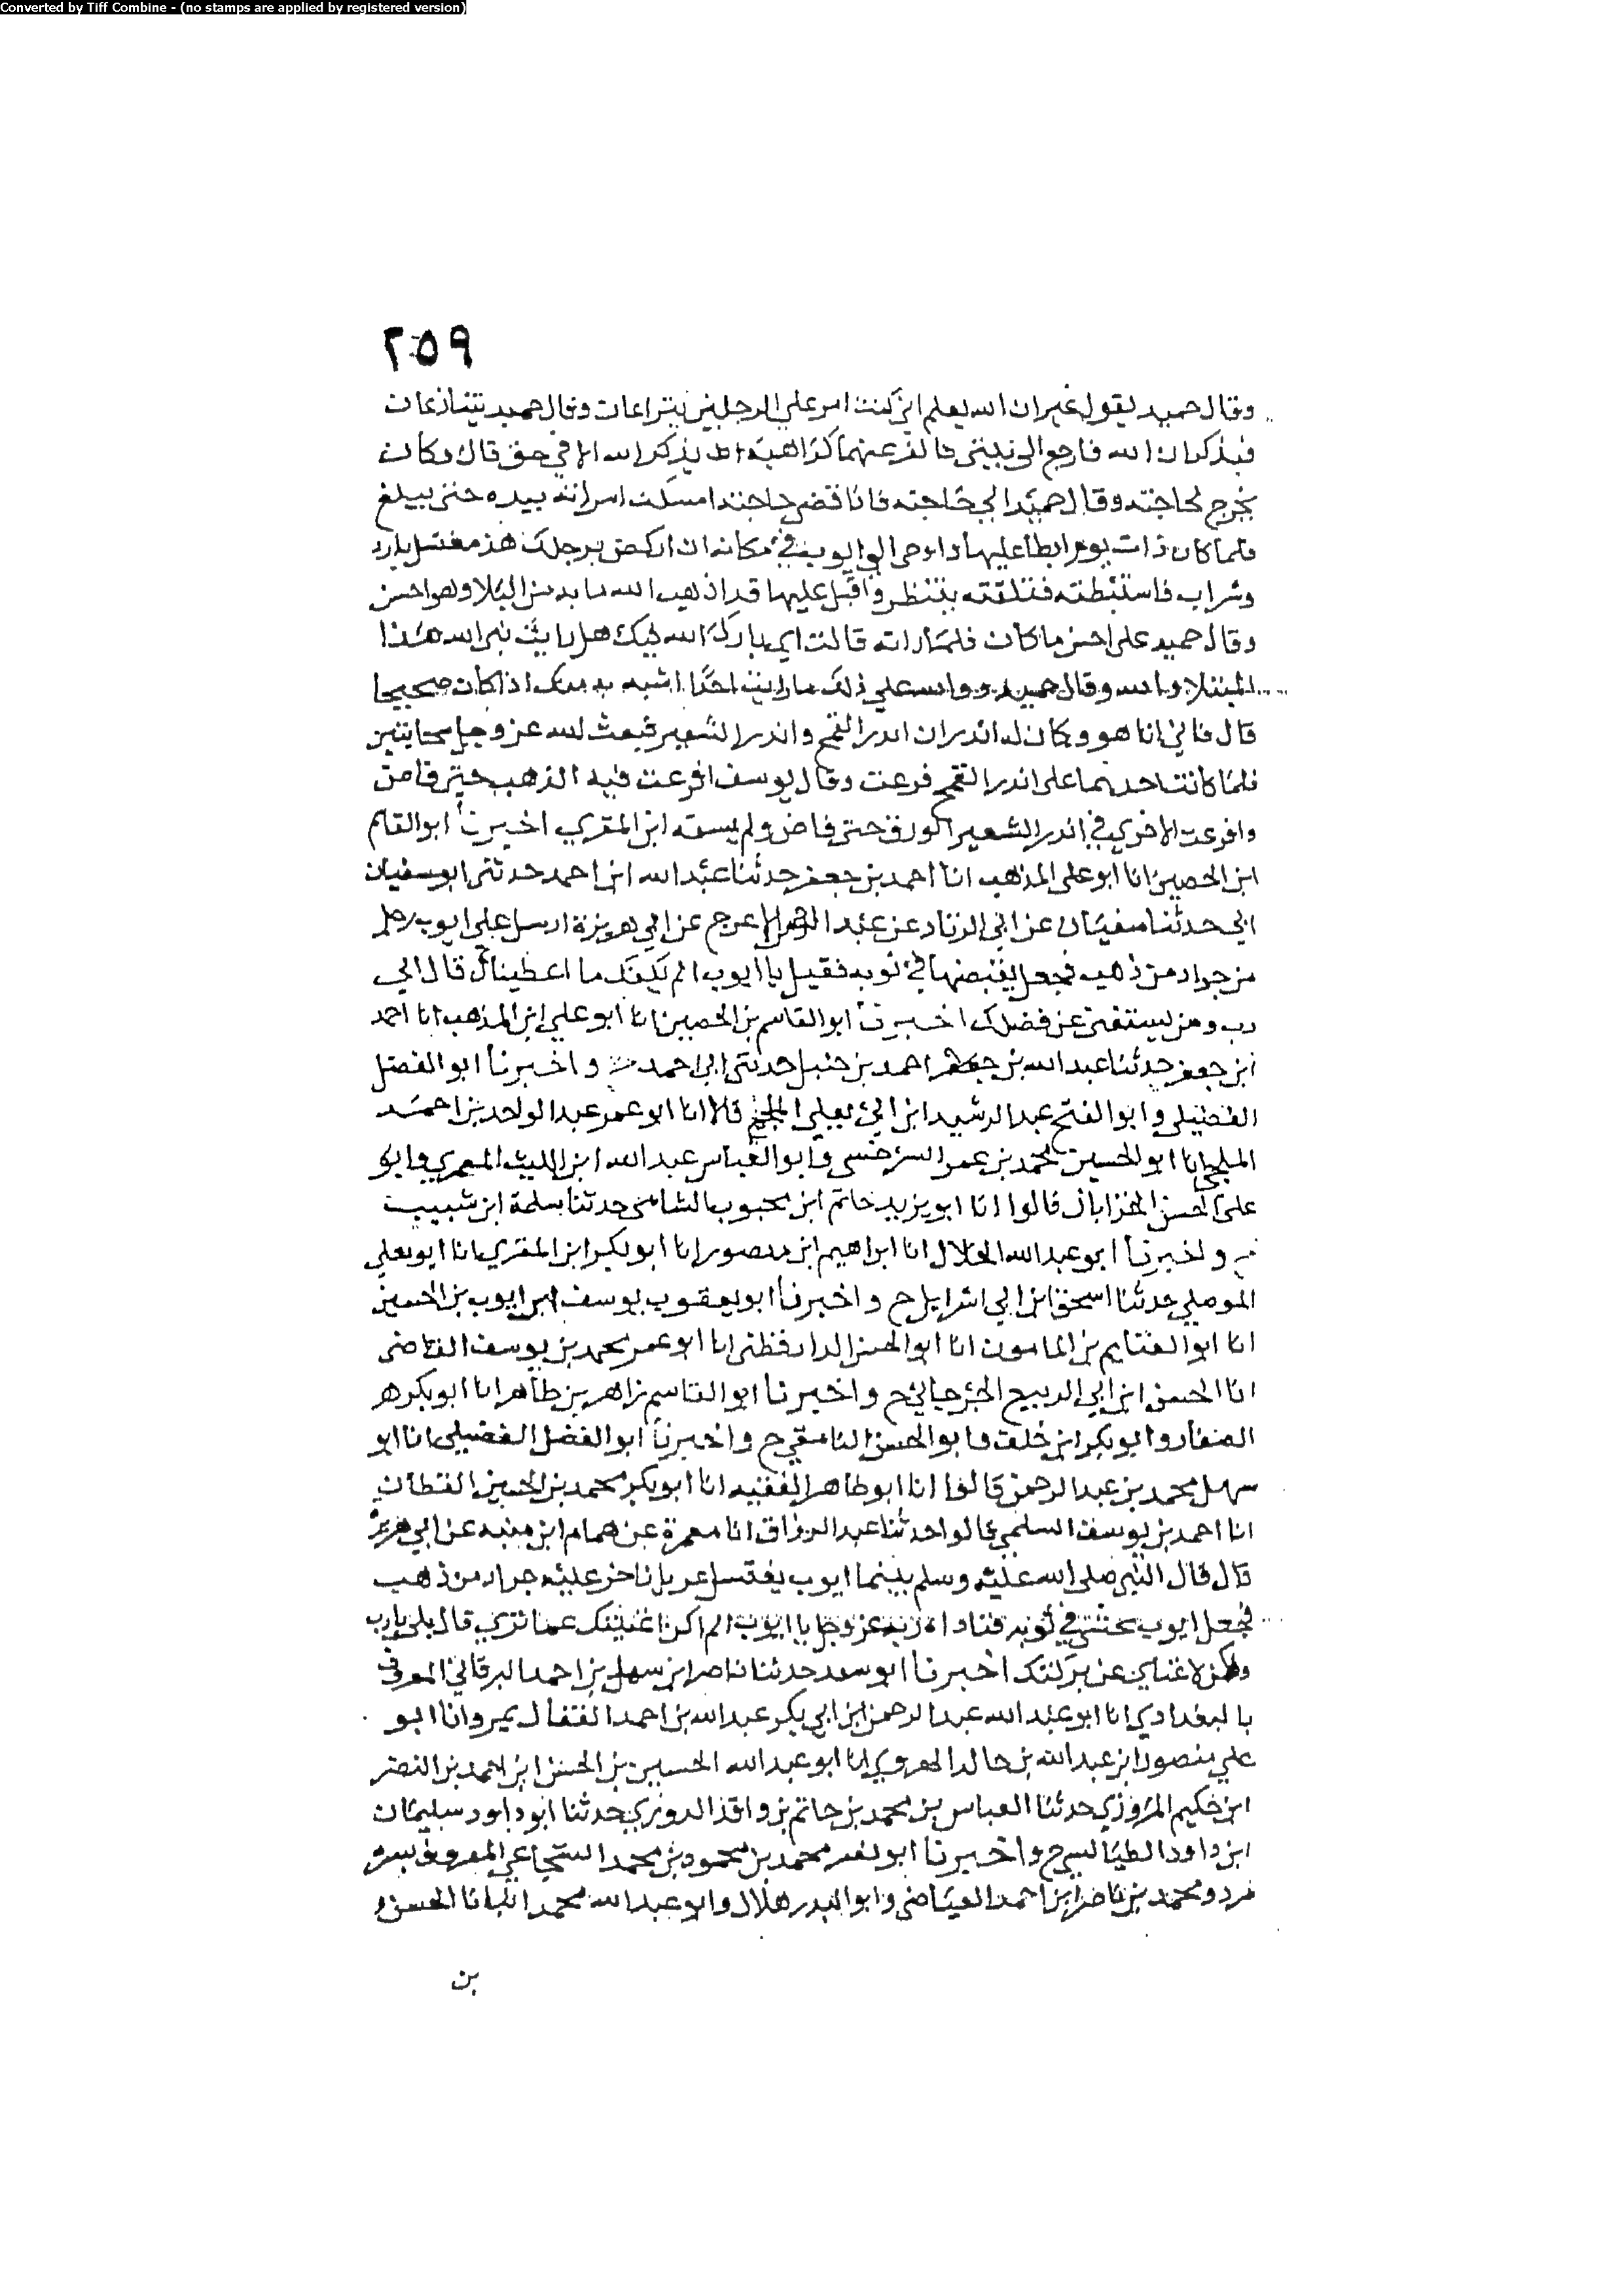 Converted by Tiff Combine - (no stamps are applied by registered version)
٢٥٩
وقال حميد يقول غير ان الله يعلم اني كنت امر على الرجلين يتراعمان وقال حميد يتنازعان
فيذكران الله فارجع الى بيتي فاكفر عنهما كراهية ان يذكر الله الا في حق قال وكان
يخرج لحاجته وقال حميد الى حاجته فاذا قضى حاجته امسكت امراته بيده حتى يبلغ
فلما كان ذات يوم ابطا عليها واوحى الى ايوب في مكانه ان اركض برجلك هذا مغتسل بارد
وشراب فاستبطته فتلقته ينتظر واقبل عليها قد اذهب الله ما به من البلا وهو احسن
وقال حميد على احسن ما كان فلما راته قالت اي بارك الله فيك هل رايت نبي الله هذا
المبتلا والله وقال حميد ووالله على ذلك ما رايت احدا اشبه به منك اذ كان صحيحا
قال فاني انا هو وكان له اندران اندر القمح واندر الشعير فبعث الله عز وجل سحابتين
فلما كانت احديهما على اندر القمح فرعت وقال يوسف افرعت فيه الذهب حتى فاض
وافرعت الاخرى في اندر الشعير الورق حتى فاض ولم يسمه ابن المقري اخبرنا ابو القاسم
ابن الحصين انا ابو على المذهب انا احمد بن جعفر حدثنا عبد الله ابن احمد حدثني ابو سفيان
ابي حدثنا سفيان عن ابي الزناد عن عبد الرحمن الاعرج عن ابي هريرة ارسل على ايوب رجل
من جراد من ذهب فجعل يقبضها في ثوبه فقيل يا ايوب الم يكفك ما اعطيناك قال اي
رب ومن يستغني عن فضلك اخبرنا ابو القاسم بن الحصين انا ابو علي ابن المذهب انا احمد
ابن جعفر حدثنا عبد الله بن احمد بن حنبل حدثني ابي احمد واخبرنا ابو الفضل
الفضيلي وابو الفتح عبد الرشيد ابن ابي يعلي قالا انا ابو عمر عبد الواحد بن احمد
المليحي انا ابو الحسين محمد بن عمر السرخسي وابو العباس عبد الله ابن الليث المعمري وابو
على الحسن قالوا انا ابو يزيد حاتم ابن محبوب الشامي حدثنا سلمة ابن شبيب
واخبرنا ابو عبد الله الخلال انا ابراهيم ابن منصور انا ابو بكر ابن المقري انا ابو يعلي
الموصلي حدثنا اسحق ابن ابي اسرايل ح واخبرنا ابو يعقوب يوسف ابن ايوب بن الحسين
انا ابو الغنايم بن المامون انا ابو الحسن الدارقطني انا ابو عمر محمد بن يوسف القاضي
انا الحسن ابن ابي الربيع الجرجاني ح واخبرنا ابو القاسم زاهر بن طاهر انا ابو بكر هر
الصفار وابو بكر ابن خلف وابو الحسن ح واخبرنا ابو الفضل الفضيلي انا ابو
سهل محمد بن عبد الرحمن قالوا انا ابو طاهر الفقيه انا ابو بكر محمد بن الحسين القطان
انا احمد بن يوسف السلمي قالوا حدثنا عبد الرزاق انا معمرة عن همام ابن منبه عن ابي هريرة
قال قال النبي صلى الله عليه وسلم بينما ايوب يغتسل عريانا خر عليه جراد من ذهب
فجعل ايوب يحتثي في ثوبه فناداه ربه عز وجل يا ايوب الم اكن اغنيتك عما ترى قال بلى يا رب
ولكن لا غناي عن بركتك اخبرنا ابو سعد حدثنا ناصر ابن سهل بن احمد البرقاني المعرف
بالبغدادي انا ابو عبد الله عبد الرحمن ابن ابي بكر عبد الله بن احمد القفال بمرو انا ابو
علي منصور ابن عبد الله بن خالد الهروي انا ابو عبد الله الحسين بن الحسن ابن احمد بن النضر
ابن حكيم المروزي حدثنا العباس بن محمد بن حاتم بن واقد الدوري حدثنا ابو داود سليمان
ابن داود الطيالسي ح واخبرنا ابو نصر محمد بن محمود بن محمد الشجاعي المعروف بسره
مرد ومحمد بن ناصر ابن احمد العياضي وابو البدر هلال وابو عبد الله محمد انبانا الحسن و
بن